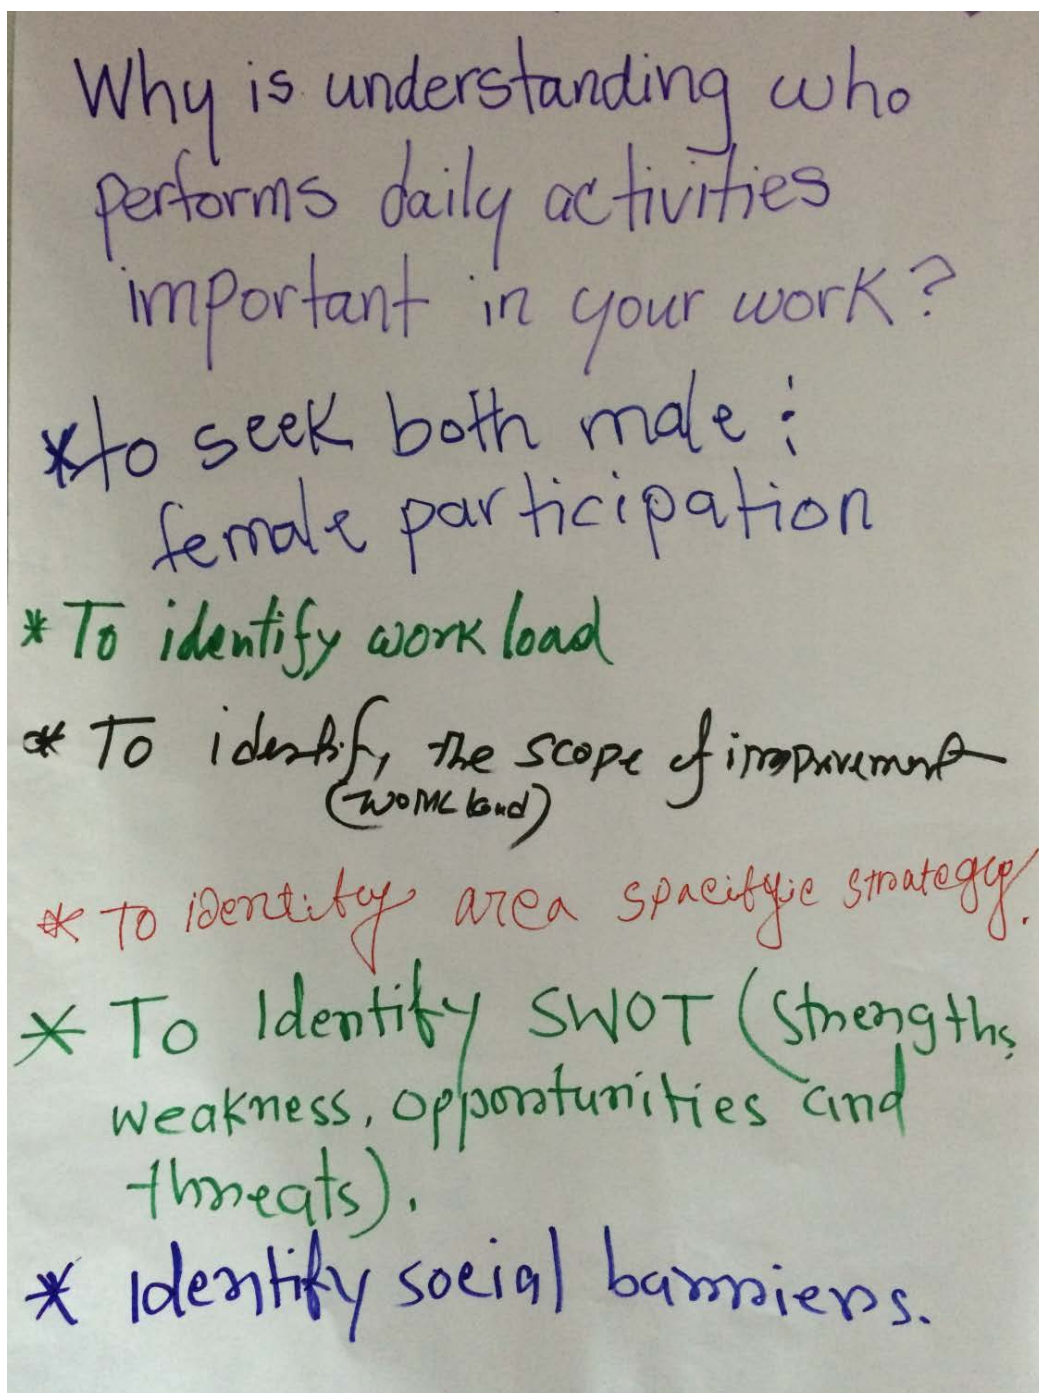 Why is understanding who
performs daily activities
important in your work?
*to seek both male &
female participation
* To identify work load
* To identify the scope of improvement
(work load)
* To identify area spacifyic strategy.
* To Identify SWOT (strengths,
weakness, opportunities and
threats).
* Identify social barriers.